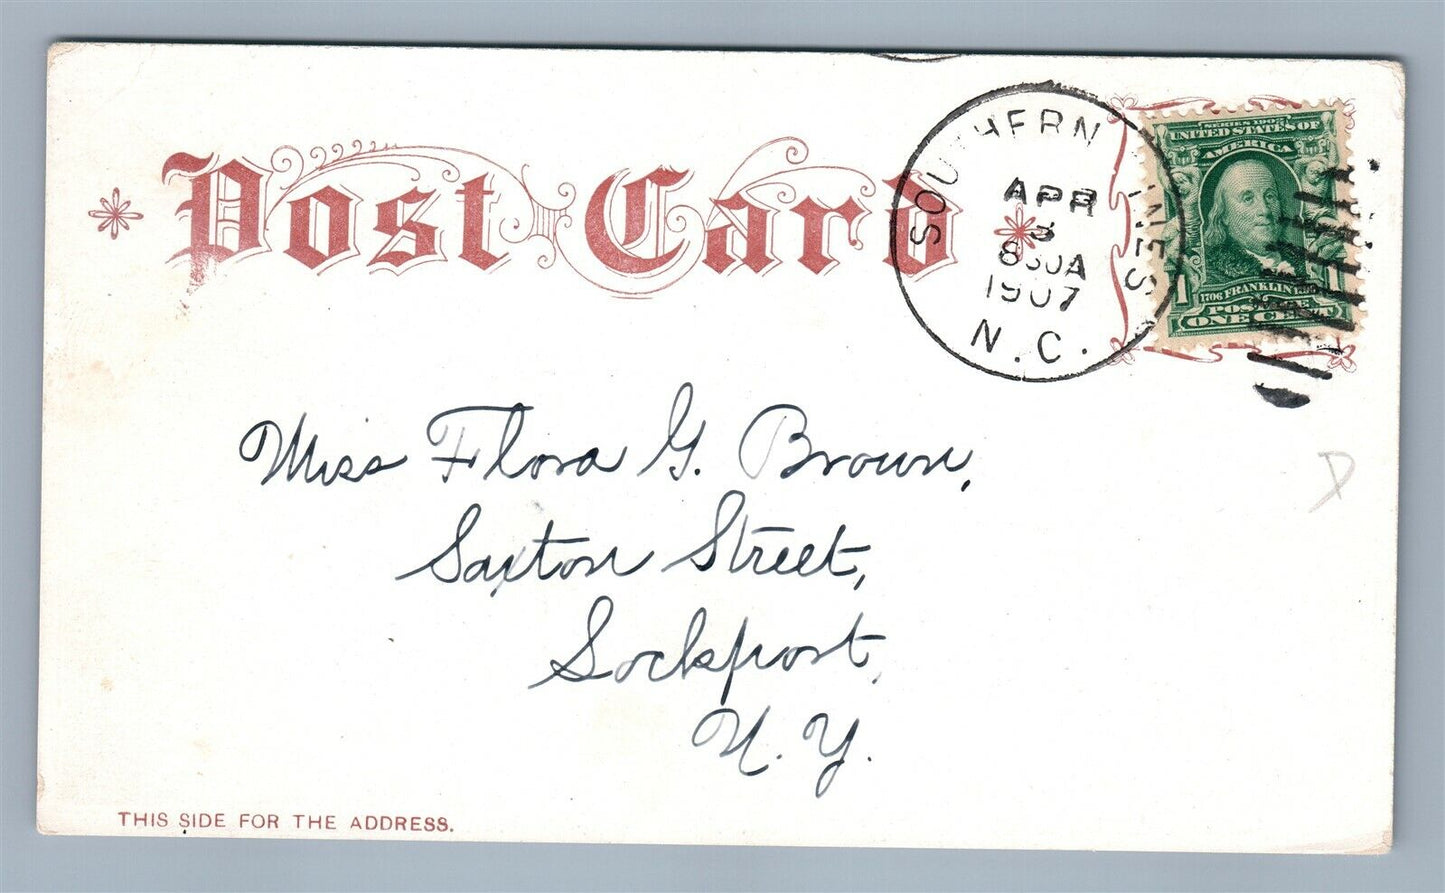 Post Card
SOUTHERN PINES
APR
3
830A
1907
N.C.
SERIES 1902
UNITED STATES OF
AMERICA
1706 FRANKLIN
POSTAGE
1 ONE CENT
Miss Flora G. Brown,
Saxton Street,
Lockport,
N. Y.
D
THIS SIDE FOR THE ADDRESS.